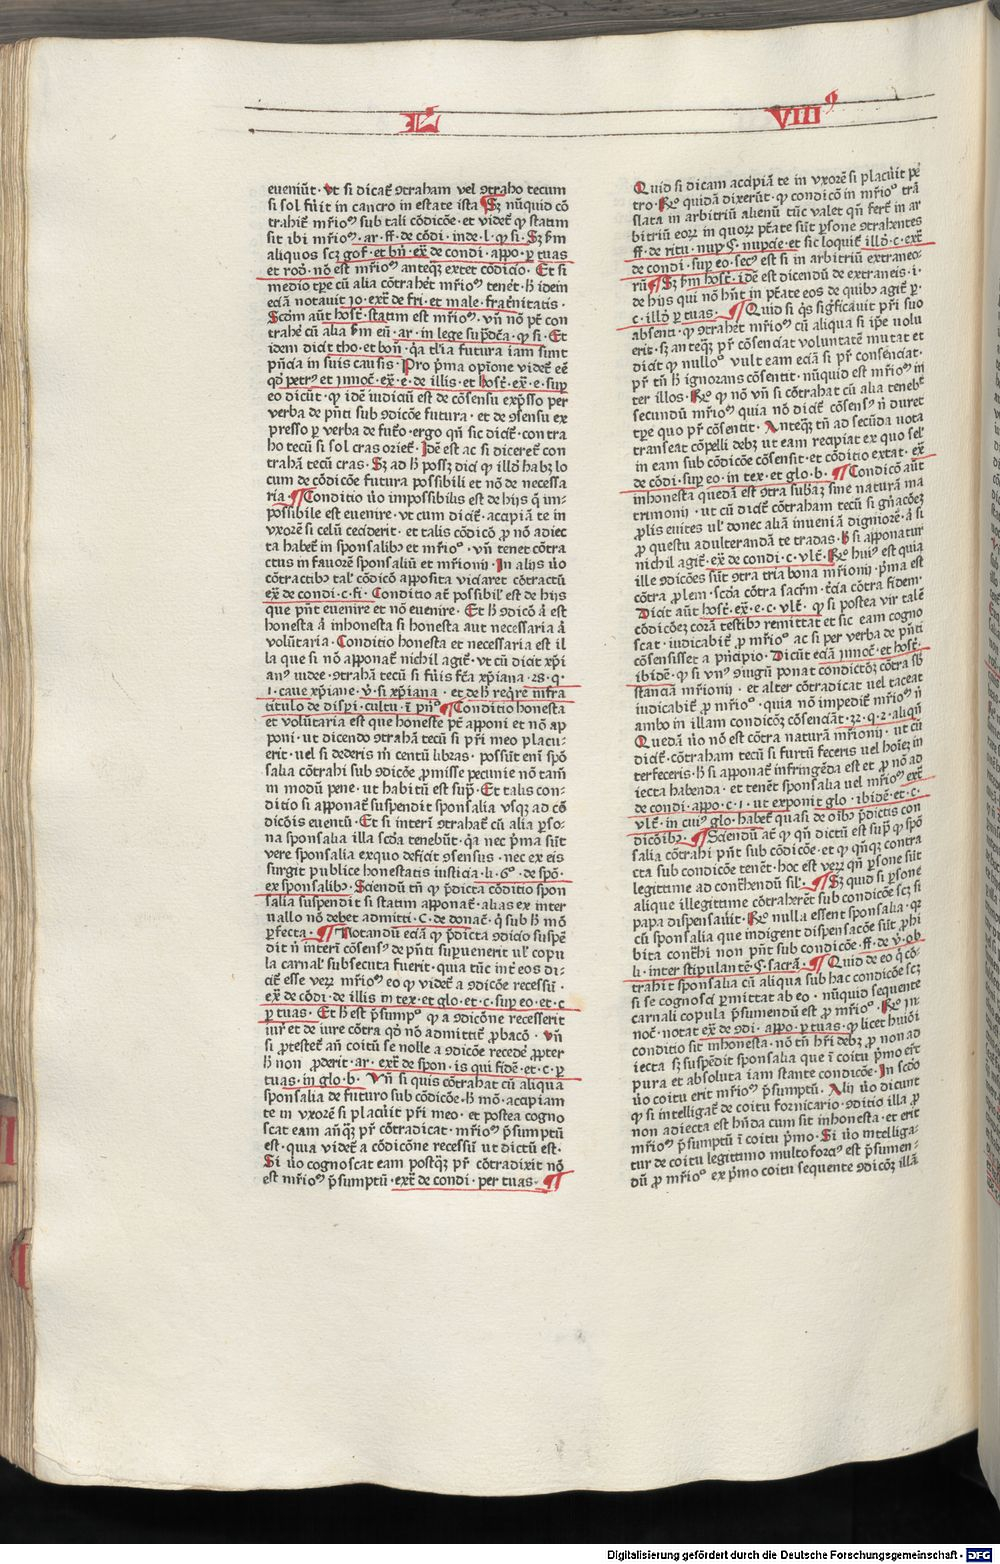 L VIII⁹
eueniūt · vt si dicat̄ ꝯtraham vel ꝯtraho tecum
si sol fu̇it in cancro in estate ista Sꝫ nūquid cō
trahit̄ mr̄io⁹ sub tali cōdicōe · et videt̄ ꝙ statim
sit ibi mr̄io⁹ · ar · ff · de cōdi · inde · l · ꝙ si · Sꝫ ẜm
aliquos scꝫ gof · et bn̄ · ex̄ de condi · appo · ꝑ tuas
et roō · nō est mr̄io⁹ anteqꝫ extet cōdicio · Et si
medio tp̄e cū alia cōtrahēt mr̄io⁹ tenet̄ · ꝫ idem
eciā notauit io · ext̄ de fri · et male · frat̄nitatis ·
Scōm aūt host̄ · statim est mr̄io⁹ · vn̄ nō pt̄ con
trahe̓ cū alia ẜm eū · ar · in lege sup̄dc̄a · ꝙ si · Et
idem dicit tho · et bon̄ · q̇a tl̓ia futura iam sunt
pn̄cia in suis causis · Pro p̄ma opīone videt̄ eē
qō petr⁹ et innoc̄ · ex̄ · e · de illis · et host̄ · ex̄ · e · suꝑ
eo dicūt · ꝙ idē iudiciū est de cōsensu exp̄sso per
verba de pn̄ti sub ꝯdicōe futura · et de ꝯsensu ex
presso ꝑ verba de fut̓o · ergo qn̄ sic dicit̄ · contra
ho tecū si sol cras oriet̄ · Idē est ac si diceret̄ con
trahā tecū cras · Sꝫ ad ħ possꝫ dici ꝙ illō habꝫ lo
cum de cōdicōe futura possibili et nō de necessa
ria · ¶ Conditio v̇o impossibilis est de hijs q̄ im-
possibile est euenire · vt cum dicit̄ · accipiā te in
vxorē si celū ceciderit · et talis cōdicō ꝓ nō adiec
ta habet̄ in sponsalibꝫ et mr̄io⁹ · vn̄ tenet cōtra
ctus in fauorē sponsaliū et mr̄ionij · In alijs v̇o
cōtractibꝫ tal̓ cōdicō apposita viciaret cōtractū
ex̄ de condi · c · fi · Conditio at̄ possibil̓ est de hijs
que pn̄t euenire et nō euenire · Et ħ ꝯdicō ā est
honesta ā inhonesta si honesta aut necessaria ā
volūtaria · Conditio honesta et necessaria est il
la que si nō apponat̄ nichil agit̄ · vt cū dicit xp̄i
an⁹ iudee · ꝯtrahā tecū si fu̇is fc̄a xp̄iana · 28 · q ·
1 · caue xp̄iane · ꝟ · si xp̄iana · et de ħ req̇re infra
titulo de dispi · cultu · ī pn̄⁹ ¶ Conditio honesta
et volūtaria est que honeste pt̄ apponi et nō ap
poni · ut dicendo ꝯtrahā tecū si pr̄i meo placu-
erit · uel si dederis m̄ centū libras · possūt eni̅ spō
salia cōtrahi sub ꝯdicōe ꝓmisse pecunie nō tam̄
in modū pene · ut habitū est sup̄ · Et talis con-
ditio si apponat̄ suspendit sponsalia vsqꝫ ad cō
dicōis euentū · Et si interī ꝯtrahat̄ cū alia ꝑso-
na sponsalia illa scōa tenebūt̄ · q̇a nec p̄ma sūt
vere sponsalia exquo deficit ꝯsensus · nec ex eis
surgit publice honestatis iusticia · li · 6⁰ · de spō ·
ex sponsalibꝫ · Sciendū tn̄ ꝙ p̄dicta cōditio spon
salia suspendit si statim apponat̄ · alias ex inter
uallo nō debet admitti · C · de donat̄ · q̇ sub ħ mō
ꝑfecta · ¶ Notandū eciā ꝙ p̄dicta ꝯdicio suspē
dit n̄ interī cōsens⁹ de pn̄ti suꝑuenerit ul̓ copu
la carnal̓ subsecuta fuerit · quia tūc int̓ eos di-
cit̄ esse veꝝ mr̄io⁹ eo ꝙ videt̄ a ꝯdicōe recessū ·
ex̄ de cōdi · de illis in tex · et glo · et · c · suꝑ eo · et · c
ꝑ tuas · Et ħ est p̄sump⁹ ꝙ a ꝯdicōne recesserit
iur̄ et de iure cōtra qō nō admittit̄ ꝓbacō · vn̄
si ꝓtestet̄ an̄ coitū se nolle a ꝯdicōe recede̓ ꝓpter
ħ non ꝓderit · ar · ext̄ de spon · is qui fidē · et · c · ꝑ
tuas · in glo · b · Vn̄ si quis cōtrahat cū aliqua
sponsalia de futuro sub cōdicōe · ħ mō · accipiam
te in vxorē si placu̇it pr̄i meo · et postea cogno
scat eam an̄qꝫ pr̄ cōtradicat · mr̄io⁹ p̄sumptū
est · quia videt̄ a cōdicōne recessū ut dictū est ·
Si v̇o cognoscat eam postqꝫ pr̄ cōtradixit nō
est mr̄io⁹ p̄sumptū · ext̄ de condi · per tuas · ¶
Quid si dicam accipiā te in vxorē si placu̇it pe
tro · R̄o quidā dixerūt · ꝙ condicō in mr̄io⁹ trā
slata in arbitriū alienū tūc valet qn̄ fert̄ in ar
bitriū eoꝝ in quoꝝ ptāte sūt ꝑsone ꝯtrahentes
ff · de ritu · nup · § · nupcie · et sic loquit̄ illō · c · ext̄
de condi · suꝑ eo · sec⁹ est si in arbitriū extraneo-
rū ¶ Sꝫ ẜm host̄ · idē est dicendū de extraneis · i ·
de hijs qui nō hn̄t in ptāte eos de quibꝫ agit̄ ꝑ ·
c · illō ꝑ tuas · ¶ Quid si q̇s significauit pr̄i suo
absenti · ꝙ ꝯtrahet mr̄io⁹ cū aliqua si ip̄e uolu
erit · sꝫ anteqꝫ pr̄ cōsenciat voluntatē mutat et
dicit ꝙ nullo⁹ vult eam eciā si pr̄ consenciat ·
pr̄ tn̄ ħ ignorans cōsentit · nūquid est mr̄io⁹ in
ter illos · R̄o · ꝙ nō vn̄ si cōtrahat cū alia tenebt̄
secundū mr̄io⁹ quia nō dicit̄ cōsens⁹ n̄ duret
tp̄e quo pr̄ cōsentit · Anteqꝫ tn̄ ad secūda uota
transeat cōpelli debꝫ ut eam recipiat ex quo sel̓
in eam sub cōdicōe cōsensit · et cōditio extat · ex̄
de cōdi · suꝑ eo · in tex · et glo · b · ¶ Condicō aūt
inhonesta quedā est ꝯtra subāꝫ siue naturā ma
trimonij · ut cū dicit̄ cōtraham tecū si gn̄acōeꝫ
ꝓlis euites ul̓ donec aliā inueniā digniorē · ā si
ꝓ questu adulterandā te tradas · ħ si apponatur
nichil agit̄ · ex̄ de condi · c · vlt̄ · R̄o hui⁹ est quia
ille ꝯdicōes sūt ꝯtra tria bona mr̄ionij · p̄ma est
cōtra ꝓlem · scōa cōtra sacr̄m · tc̄ia cōtra fidem ·
Dicit aūt host̄ · ex̄ · e · c · vlt̄ · ꝙ si postea vir talē
cōdicōeꝫ corā testibꝫ remittat et sic eam cogno
scat · iudicabit̄ ꝓ mr̄io⁹ ac si per verba de pn̄ti
cōsensisset a pn̄cipio · Dicūt eciā innoc̄ · et host̄ ·
ibidē · ꝙ si vn⁹ ꝯiugū ponat condictōꝫ cōtra sb̄
stanciā mr̄ionij · et alter cōtradicat uel taceat
iudicabit̄ ꝓ mr̄io⁹ · quia nō impedit̄ mr̄io⁹ n̄
ambo in illam condicōꝫ cōsenciāt · 32 · q · 2 · aliqn̄
Quedā v̇o nō est cōtra naturā mr̄ionij · ut cū
dicit̄ · cōtraham tecū si furtū feceris uel hoīeꝫ in
terfeceris · ħ si apponat̄ infringēda est et ꝓ nō ad
iecta habenda · et tenēt sponsalia uel mr̄io⁹ ext̄
de condi · appo · c · 1 · ut exponit glo · ibidē · et · c ·
vlt̄ · in cui⁹ glo · habet̄ quasi de oībꝫ p̄dictis con
dicōibꝫ · ¶ Sciendū at̄ ꝙ qn̄ dictū est sup̄ ꝙ spō
salia cōtrahi pn̄t sub cōdicōe · et ꝙ qn̄qꝫ contra
cta sub condicōe tenēt · hoc est veꝝ qn̄ ꝑsone sūt
legittime ad cont̓hendū sil̓ · ¶ Sꝫ quid si ꝑsone
alique illegittime cōtraherēt sub condicōe scꝫ si
papa dispensau̇it · R̄o nulla essent sponsalia · qꝛ
cū sponsalia que indigent dispensacōe sūt ꝓhi
bita cont̓hi non pn̄t sub condicōe · ff · de ꝟ · ob
li · inter stipulantē · § · sacrā · ¶ Quid de eo q̇ cō-
trahit sponsalia cū aliqua sub hac condicōe scꝫ
si se cognosci ꝑmittat ab eo · nūquid sequente
carnali copula p̄sumendū est ꝓ mr̄io⁹ · R̄o in-
noc̄ · notat ex̄ de ꝯdi · appo · ꝑ tuas · ꝙ licet hui̇oi
conditio sit inhonesta · nō tn̄ hr̄i debꝫ ꝓ non ad
iecta sꝫ suspēdit sponsalia que ī coitu p̄mo erūt
pura et absoluta iam stante condicōe · In scōo
v̇o coitu erit mr̄io⁹ p̄sumptū · Alij v̇o dicunt
ꝙ si intelligat̄ de coitu fornicario · ꝯditio illa ꝓ
non adiecta est hn̄da cum sit inhonesta · et erit
mr̄io⁹ p̄sumptū ī coitu p̄mo · Si v̇o intelliga-
tur de coitu legittimo multo forci⁹ est p̄sumen-
dū ꝓ mr̄io⁹ ex p̄mo coitu sequente ꝯdicōꝫ illā
Digitalisierung gefördert durch die Deutsche Forschungsgemeinschaft - DFG